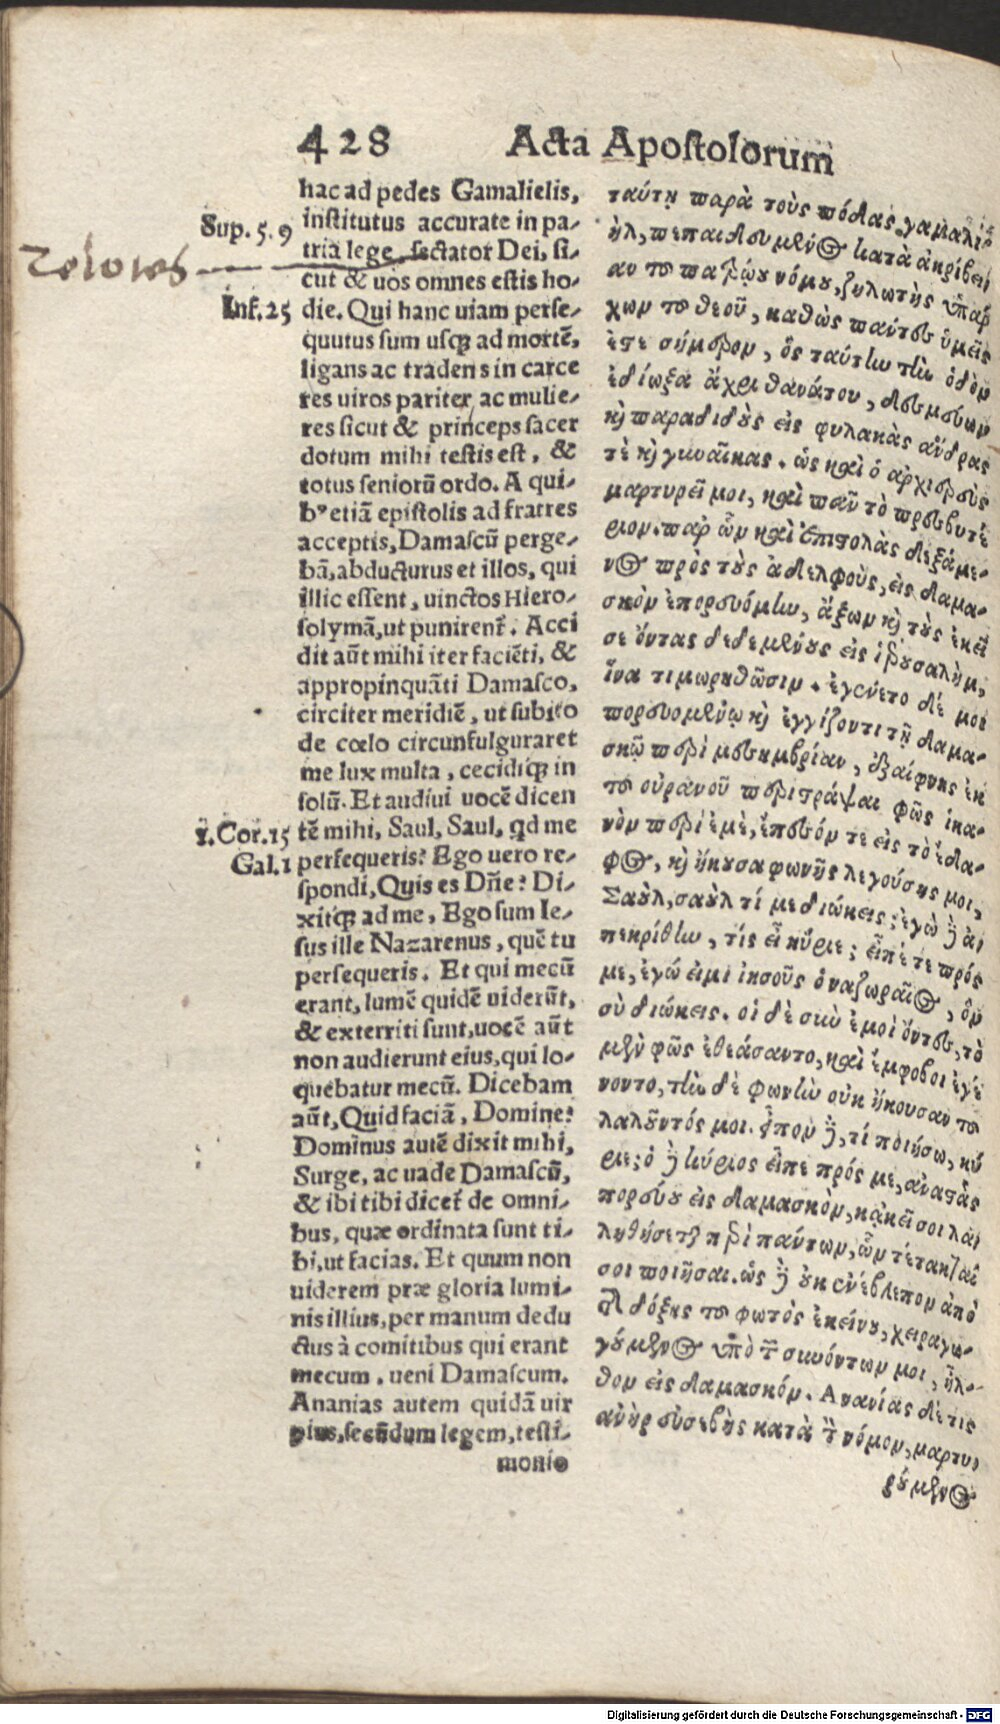 428 Acta Apostolorum
hac ad pedes Gamalielis,
institutus accurate in pa-
tria lege, sectator Dei, si-
cut & uos omnes estis ho-
die. Qui hanc uiam perse-
quutus sum usq; ad mortē,
ligans ac tradens in carce
res uiros pariter, ac mulie-
res sicut & princeps sacer
dotum mihi testis est, &
totus seniorū ordo. A qui-
bꝰ etiā epistolis ad fratres
acceptis, Damascū perge-
bā, abducturus et illos, qui
illic essent, uinctos Hiero-
solymā, ut punirent᷑. Acci
dit aūt mihi iter faciēti, &
appropinquāti Damasco,
circiter meridiē, ut subito
de cœlo circunfulguraret
me lux multa, cecidiq; in
solū. Et audiui uocē dicen
tē mihi, Saul, Saul, qd me
persequeris? Ego uero re-
spondi, Quis es Dñe? Di-
xitq; ad me, Ego sum Ie-
sus ille Nazarenus, quē tu
persequeris. Et qui mecū
erant, lumē quidē uiderūt,
& exterriti sunt, uocē aūt
non audierunt eius, qui lo-
quebatur mecū. Dicebam
aūt, Quid faciā, Domine?
Dominus autē dixit mihi,
Surge, ac uade Damascū,
& ibi tibi dicet᷑ de omni-
bus, quæ ordinata sunt ti-
bi, ut facias. Et quum non
uiderem præ gloria lumi-
nis illius, per manum dedu
ctus à comitibus qui erant
mecum, ueni Damascum.
Ananias autem quidā uir
pius, secūdum legem, testi-
monio
Sup. 5. 9
Inf. 25
1. Cor. 15
Gal. 1
ταύτῃ παρὰ τοὺς πόδας γαμαλι
ὴλ, πεπαιδευμένος κατὰ ἀκρίβει
αν τοῦ πατρῴου νόμου, ζηλωτὴς ὑπάρ
χων τοῦ θεοῦ, καθὼς πάντες ὑμεῖς
ἐστε σήμερον, ὃς ταύτην τὴν ὁδὸν
ἐδίωξα ἄχρι θανάτου, δεσμεύων
κὶ παραδιδοὺς εἰς φυλακὰς ἄνδρας
τὲ κὶ γυναῖκας. ὡς καὶ ὁ ἀρχιερεὺς
μαρτυρεῖ μοι, καὶ πᾶν τὸ πρεσβυτέ
ριον. παρ ὧν καὶ ἐπιστολὰς δεξάμε-
νος πρὸς τοὺς ἀδελφοὺς, εἰς δαμα-
σκὸν ἐπορευόμην, ἄξων κὶ τοὺς ἐκεῖ
σε ὄντας δεδεμένους εἰς ἱερουσαλὴμ,
ἵνα τιμωρηθῶσιν. ἐγένετο δέ μοι
πορευομένῳ κὶ ἐγγίζοντι τῇ δαμα-
σκῷ περὶ μεσημβρίαν, ἐξαίφνης ἐκ
τοῦ οὐρανοῦ περιστράψαι φῶς ἱκα-
νὸν περὶ ἐμὲ, ἔπεσόν τε εἰς τὸ ἔδα-
φος, κὶ ἤκουσα φωνῆς λεγούσης μοι,
Σαοὺλ, σαοὺλ τί με διώκεις; ἐγὼ δὲ ἀ
πεκρίθην, τίς εἶ κύριε; εἶπέ τε πρός
με, ἐγώ εἰμι ἰησοῦς ὁ ναζωραῖος, ὃν
σὺ διώκεις. οἱ δὲ σὺν ἐμοὶ ὄντες, τὸ
μὲν φῶς ἐθεάσαντο, καὶ ἔμφοβοι ἐγέ
νοντο, τὴν δὲ φωνὴν οὐκ ἤκουσαν τοῦ
λαλοῦντός μοι. εἶπον δὲ, τί ποιήσω, κύ
ριε; ὁ δὲ κύριος εἶπε πρός με, ἀναστὰς
πορεύου εἰς δαμασκὸν, κἀκεῖ σοι λα
ληθήσεται περὶ πάντων, ὧν τέτακταί
σοι ποιῆσαι. ὡς δὲ οὐκ ἐνέβλεπον ἀπὸ
τῆς δόξης τοῦ φωτὸς ἐκείνου, χειραγω-
γούμενος ὑπὸ τῶν συνόντων μοι, ἦλ-
θον εἰς δαμασκόν. Ανανίας δέ τις
ἀνὴρ εὐσεβὴς κατὰ τὸν νόμον, μαρτυ
ρούμενος